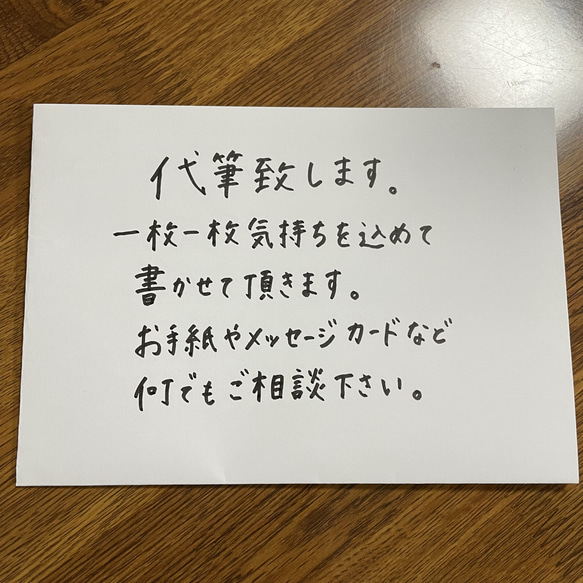 代筆致します。
一枚一枚気持ちを込めて
書かせて頂きます。
お手紙やメッセージカードなど
何でもご相談下さい。